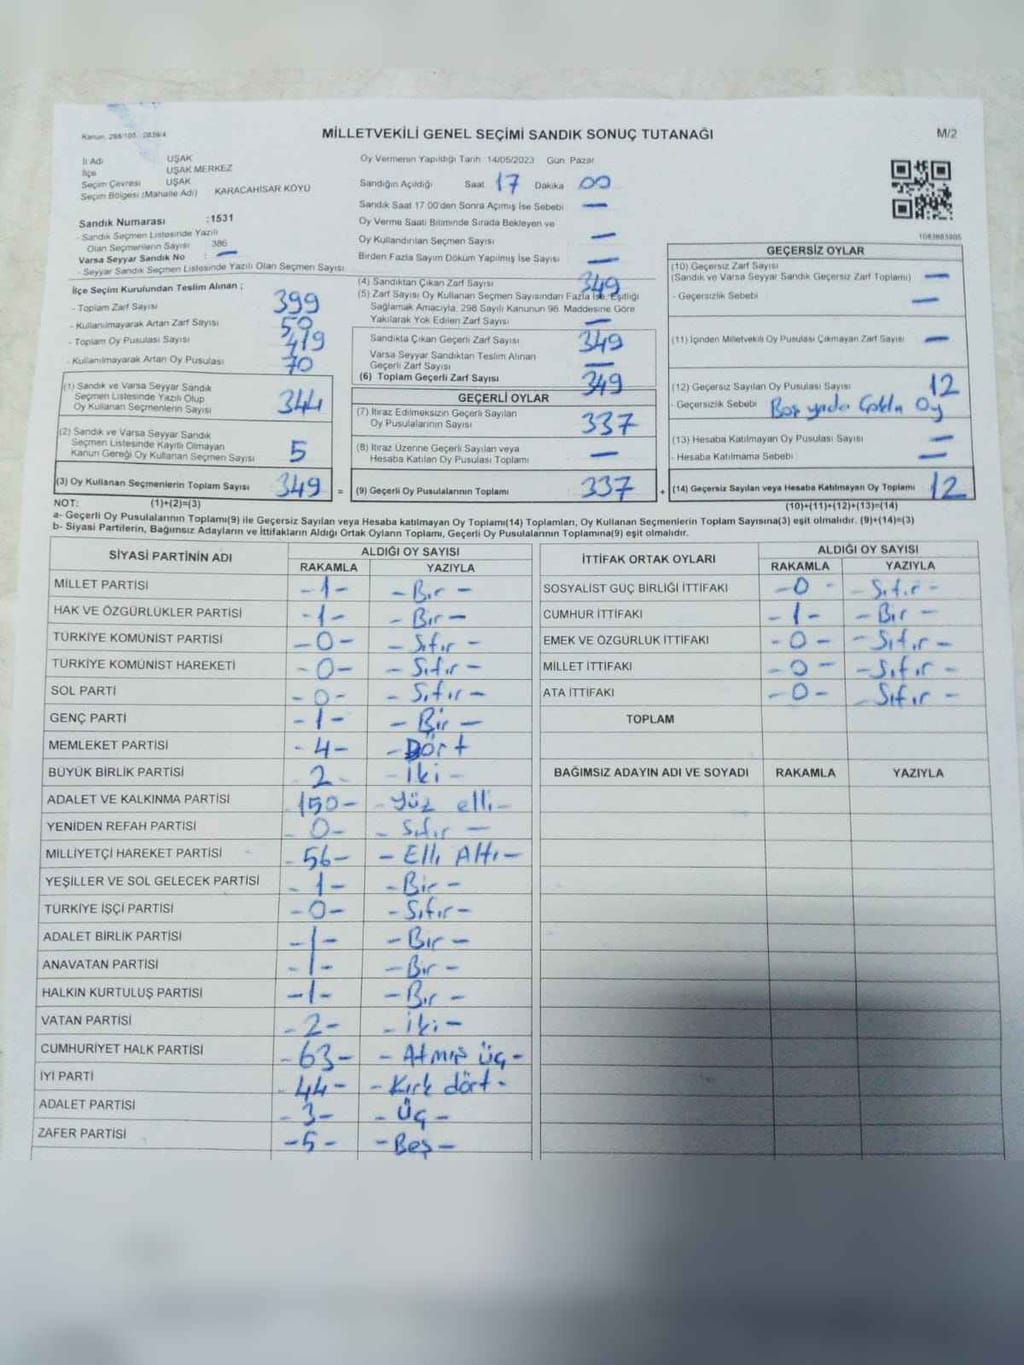 Kanun: 298/105 2839/4
MİLLETVEKİLİ GENEL SEÇİMİ SANDIK SONUÇ TUTANAĞI
M/2
İl Adı UŞAK
İlçe UŞAK MERKEZ
Seçim Çevresi UŞAK
Seçim Bölgesi (Mahalle Adı) KARACAHİSAR KÖYÜ
Sandık Numarası :1531
- Sandık Seçmen Listesinde Yazılı
Olan Seçmenlerin Sayısı 386
Varsa Seyyar Sandık No : —
- Seyyar Sandık Seçmen Listesinde Yazılı Olan Seçmen Sayısı:
Oy Vermenin Yapıldığı Tarih 14/05/2023 Gün Pazar
Sandığın Açıldığı Saat 17 Dakika 00
Sandık Saat 17.00'den Sonra Açılmış İse Sebebi —
Oy Verme Saati Bitiminde Sırada Bekleyen ve
Oy Kullandırılan Seçmen Sayısı —
Birden Fazla Sayım Döküm Yapılmış İse Sayısı —
İlçe Seçim Kurulundan Teslim Alınan ;
- Toplam Zarf Sayısı 399
- Kullanılmayarak Artan Zarf Sayısı 50
- Toplam Oy Pusulası Sayısı 419
- Kullanılmayarak Artan Oy Pusulası 70
(1) Sandık ve Varsa Seyyar Sandık
Seçmen Listesinde Yazılı Olup
Oy Kullanan Seçmenlerin Sayısı 344
(2) Sandık ve Varsa Seyyar Sandık
Seçmen Listesinde Kayıtlı Olmayan
Kanun Gereği Oy Kullanan Seçmen Sayısı 5
(3) Oy Kullanan Seçmenlerin Toplam Sayısı 349 =
(4) Sandıktan Çıkan Zarf Sayısı 349
(5) Zarf Sayısı Oy Kullanan Seçmen Sayısından Fazla İse, Eşitliği
Sağlamak Amacıyla, 298 Sayılı Kanunun 98. Maddesine Göre
Yakılarak Yok Edilen Zarf Sayısı —
Sandıkta Çıkan Geçerli Zarf Sayısı 349
Varsa Seyyar Sandıktan Teslim Alınan
Geçerli Zarf Sayısı —
(6) Toplam Geçerli Zarf Sayısı 349
GEÇERLİ OYLAR
(7) İtiraz Edilmeksizin Geçerli Sayılan
Oy Pusulalarının Sayısı 337
(8) İtiraz Üzerine Geçerli Sayılan veya
Hesaba Katılan Oy Pusulası Toplamı —
(9) Geçerli Oy Pusulalarının Toplamı 337 +
1083883805
GEÇERSİZ OYLAR
(10) Geçersiz Zarf Sayısı
(Sandık ve Varsa Seyyar Sandık Geçersiz Zarf Toplamı) —
- Geçersizlik Sebebi —
(11) İçinden Milletvekili Oy Pusulası Çıkmayan Zarf Sayısı —
(12) Geçersiz Sayılan Oy Pusulası Sayısı 12
- Geçersizlik Sebebi Boş yada Çoklu Oy
(13) Hesaba Katılmayan Oy Pusulası Sayısı —
- Hesaba Katılmama Sebebi —
(14) Geçersiz Sayılan veya Hesaba Katılmayan Oy Toplamı 12
NOT: (1)+(2)=(3)
(10)+(11)+(12)+(13)=(14)
a- Geçerli Oy Pusulalarının Toplamı(9) ile Geçersiz Sayılan veya Hesaba katılmayan Oy Toplamı(14) Toplamları, Oy Kullanan Seçmenlerin Toplam Sayısına(3) eşit olmalıdır. (9)+(14)=(3)
b- Siyasi Partilerin, Bağımsız Adayların ve İttifakların Aldığı Ortak Oyların Toplamı, Geçerli Oy Pusulalarının Toplamına(9) eşit olmalıdır.
SİYASİ PARTİNİN ADI
ALDIĞI OY SAYISI
RAKAMLA YAZIYLA
MİLLET PARTİSİ -1- -Bir-
HAK VE ÖZGÜRLÜKLER PARTİSİ -1- -Bir-
TÜRKİYE KOMÜNİST PARTİSİ -0- -Sıfır-
TÜRKİYE KOMÜNİST HAREKETİ -0- -Sıfır-
SOL PARTİ -0- -Sıfır-
GENÇ PARTİ -1- -Bir-
MEMLEKET PARTİSİ -4- -Dört
BÜYÜK BİRLİK PARTİSİ 2- -İki-
ADALET VE KALKINMA PARTİSİ -150- -Yüz elli-
YENİDEN REFAH PARTİSİ -0- -Sıfır-
MİLLİYETÇİ HAREKET PARTİSİ -56- -Elli Altı-
YEŞİLLER VE SOL GELECEK PARTİSİ -1- -Bir-
TÜRKİYE İŞÇİ PARTİSİ -0- -Sıfır-
ADALET BİRLİK PARTİSİ -1- -Bir-
ANAVATAN PARTİSİ -1- -Bir-
HALKIN KURTULUŞ PARTİSİ -1- -Bir-
VATAN PARTİSİ -2- -İki-
CUMHURİYET HALK PARTİSİ -63- -Atmış üç-
İYİ PARTİ -44- -Kırk dört-
ADALET PARTİSİ -3- -Üç-
ZAFER PARTİSİ -5- -Beş-
İTTİFAK ORTAK OYLARI
ALDIĞI OY SAYISI
RAKAMLA YAZIYLA
SOSYALİST GÜÇ BİRLİĞİ İTTİFAKI -0- -Sıfır-
CUMHUR İTTİFAKI -1- -Bir-
EMEK VE ÖZGÜRLÜK İTTİFAKI -0- -Sıfır-
MİLLET İTTİFAKI -0- -Sıfır-
ATA İTTİFAKI -0- -Sıfır-
TOPLAM
BAĞIMSIZ ADAYIN ADI VE SOYADI RAKAMLA YAZIYLA